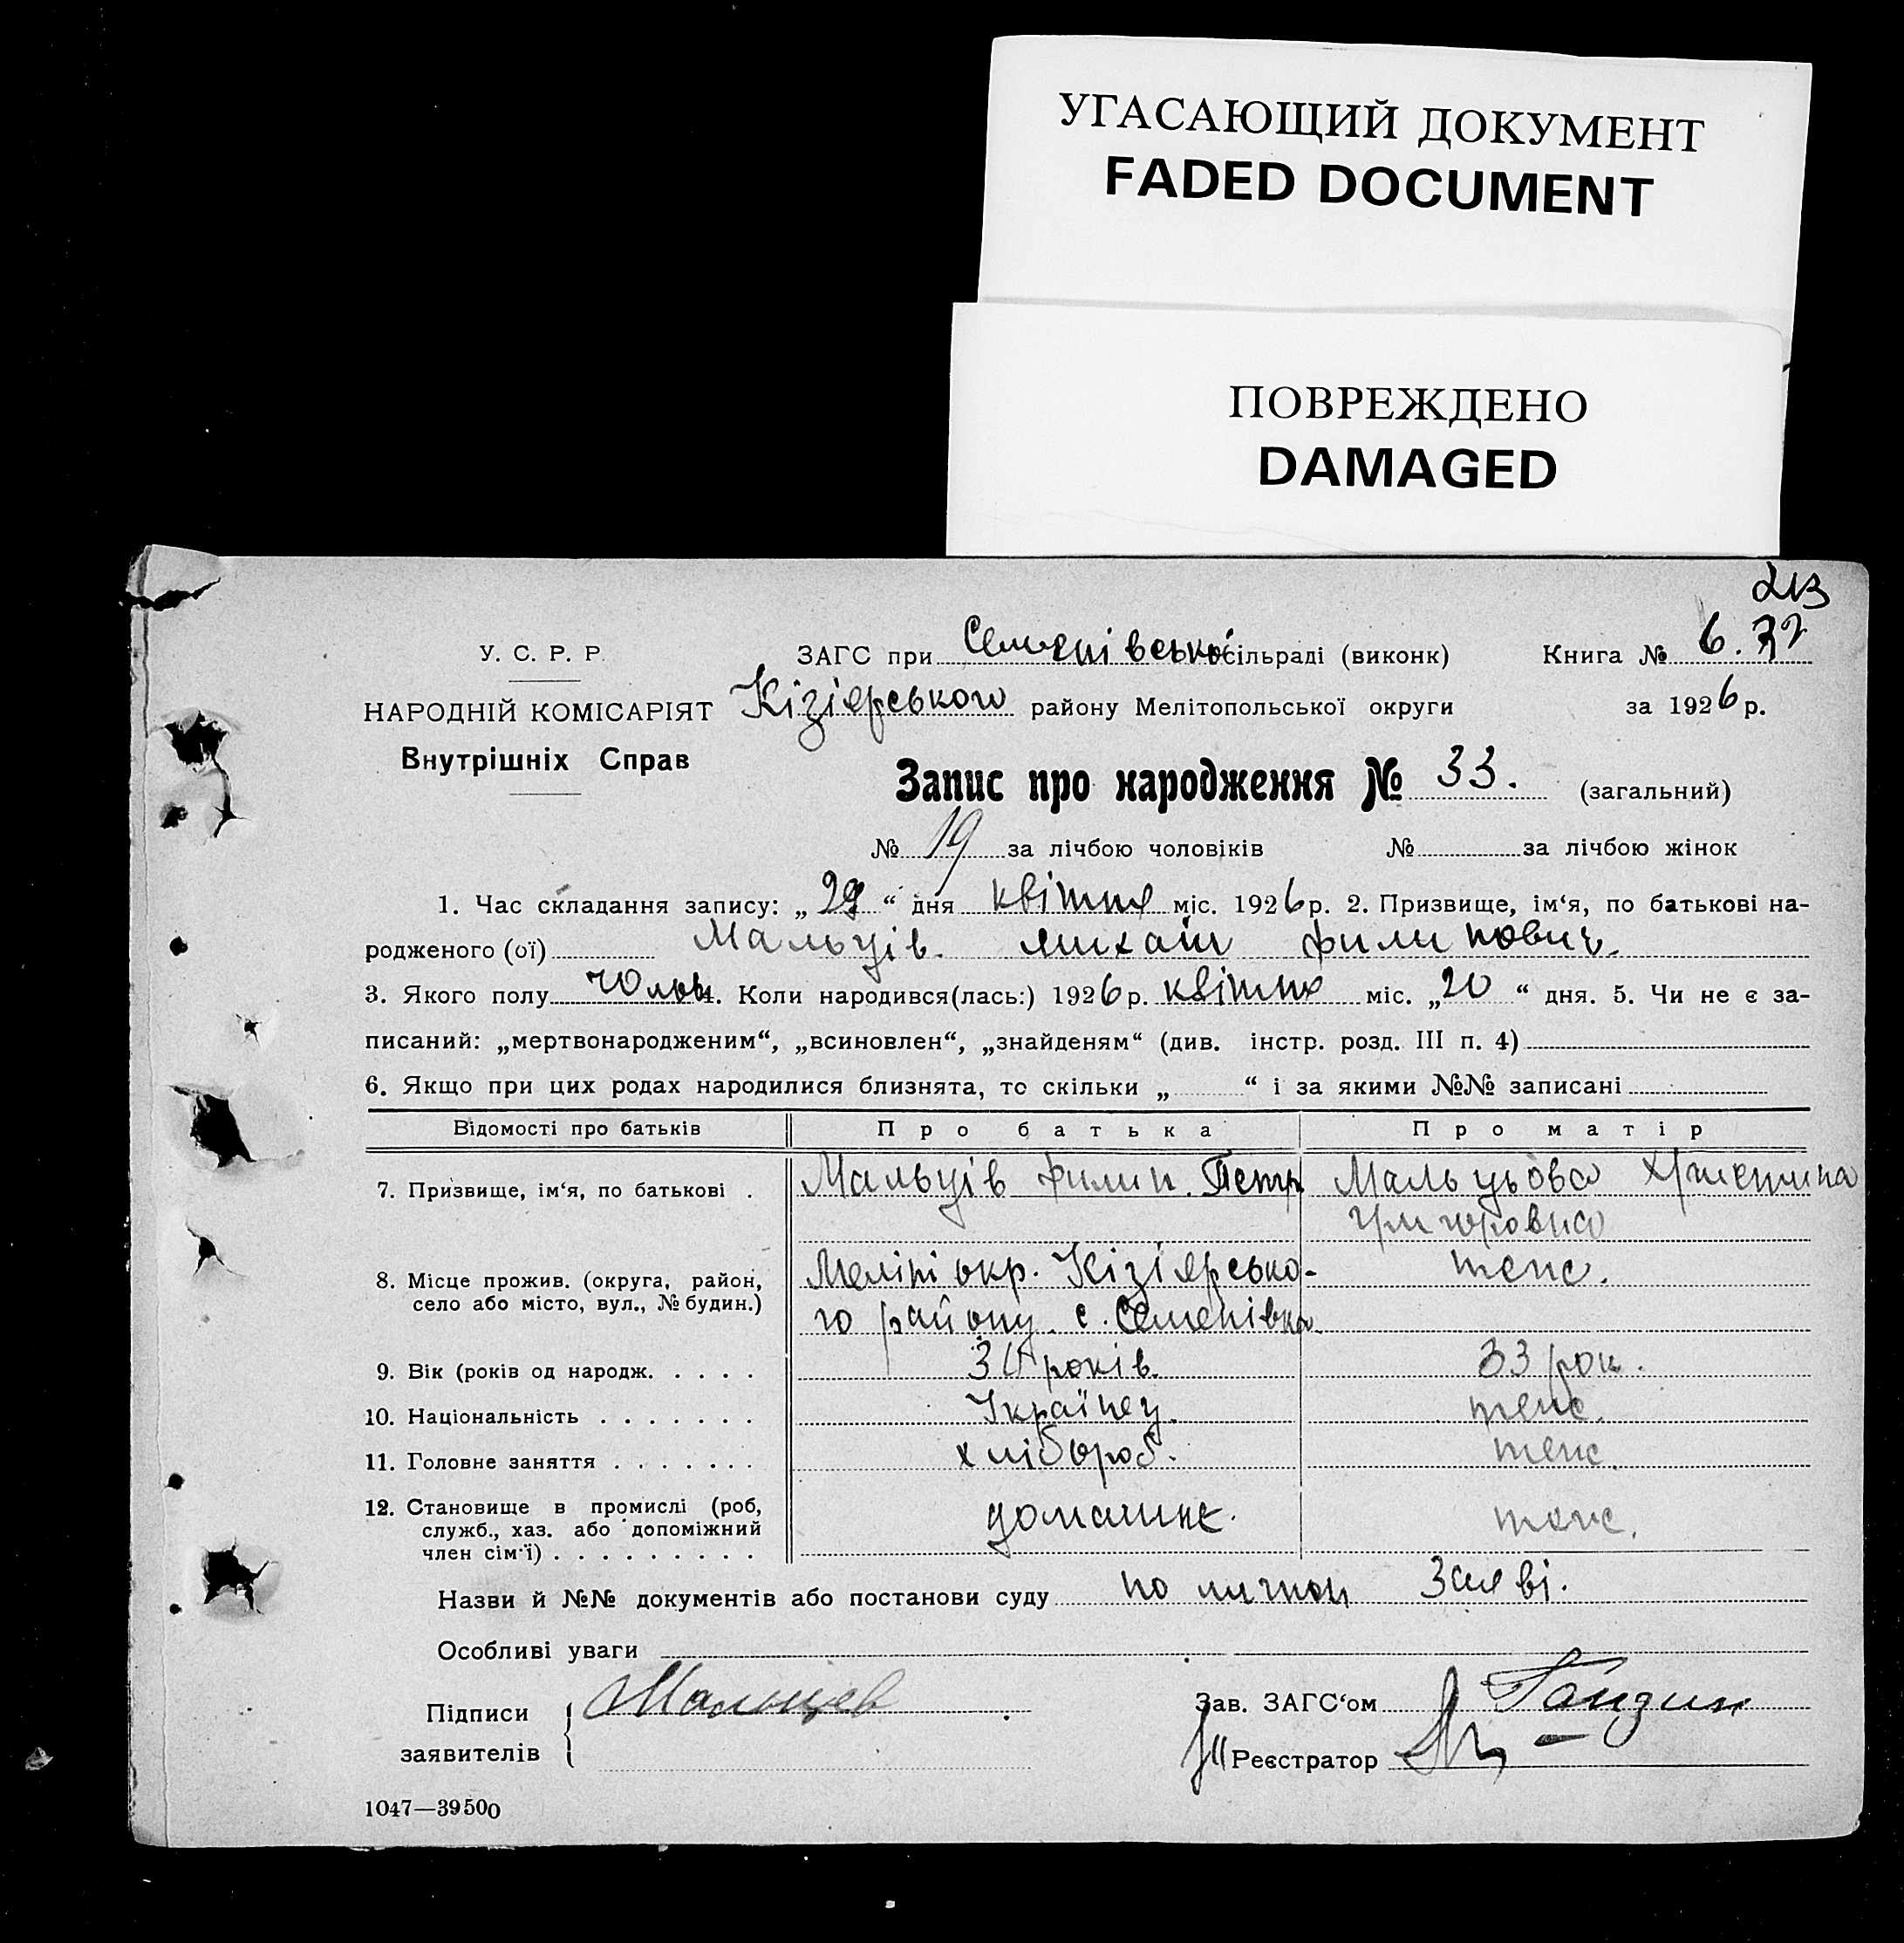 УГАСАЮЩИЙ ДОКУМЕНТ
FADED DOCUMENT
ПОВРЕЖДЕНО
DAMAGED
213
У. С. Р. Р. ЗАГС при Семенівської сільраді (виконк) Книга № 6.
НАРОДНІЙ КОМІСАРІЯТ Кізіярського району Мелітопольської округи за 1926 р.
Внутрішніх Справ
Запис про народження № 33. (загальний)
№ 19 за лічбою чоловіків № за лічбою жінок
1. Час складання запису: „29“ дня квітня міс. 1926 р. 2. Призвище, ім‘я, по батькові на-
родженого (ої) Мальців Михаіл Филипович.
3. Якого полу Чолов. 4. Коли народився(лась:) 1926 р. квітня міс. „20“ дня. 5. Чи не є за-
писаний: „мертвонародженим“, „всиновлен“, „знайденям“ (див. інстр. розд. III п. 4)
6. Якщо при цих родах народилися близнята, то скільки „ “ і за якими №№ записані
Відомості про батьків Про батька Про матір
7. Призвище, ім‘я, по батькові . Мальців Филип. Петр Мальцьова Христина
Григоровна
8. Місце прожив. (округа, район, Меліт окр. Кізіярсько- тепс.
село або місто, вул., № будин.) го району. с. Семенівка.
9. Вік (років од народж. . . . . років. 33 рок.
10. Національність . . . . . . . Українец. тепс.
11. Головне заняття . . . . . . . хлібороб. тепс.
12. Становище в промислі (роб, домашнє. тепс.
служб., хаз. або допоміжний
член сім‘ї) . . . . . . . . .
Назви й №№ документів або постанови суду по личной Заяві.
Особливі уваги
Підписи Мальцев Зав. ЗАГС‘ом
заявителів Реєстратор
1047—39500